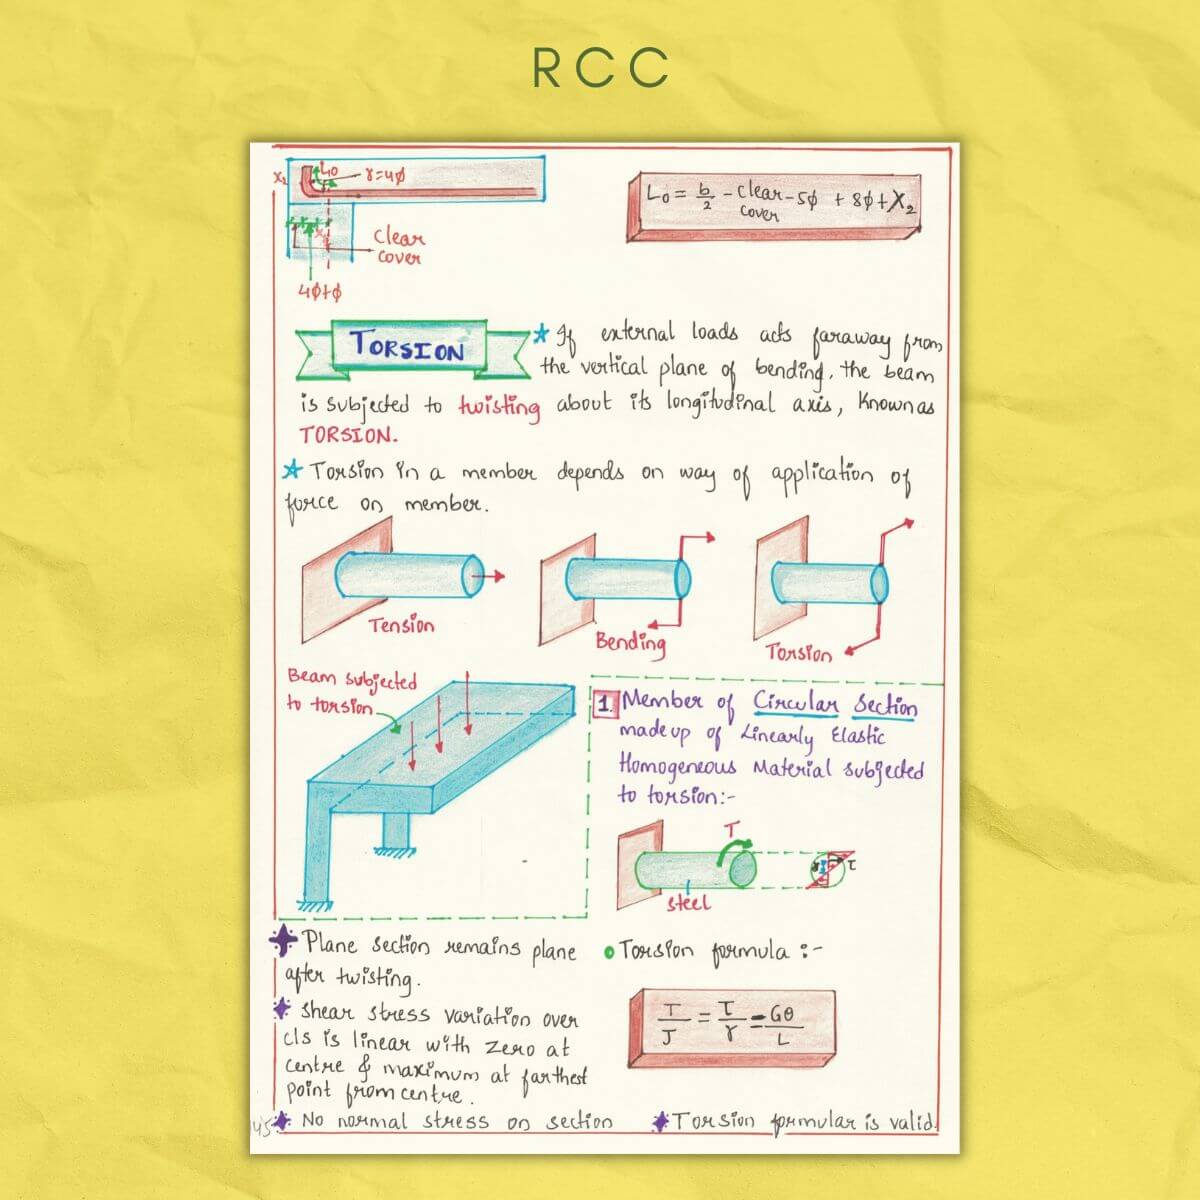 RCC
X₂ L₀ r=4φ
L₀ = b/2 - clear cover - 5φ + 8φ + X₂
clear
cover
4φ+φ
TORSION
★ If external loads acts faraway from
the vertical plane of bending, the beam
is subjected to twisting about its longitudinal axis, Known as
TORSION.
★ Torsion in a member depends on way of application of
force on member.
Tension
Bending
Torsion
Beam subjected
to torsion
1. Member of Circular Section
made up of Linearly Elastic
Homogeneous Material subjected
to torsion:-
T
τ
steel
Plane section remains plane
after twisting.
Shear stress variation over
c/s is linear with zero at
centre & maximum at farthest
point from centre.
No normal stress on section
Torsion formula :-
T/J = τ/r = Gθ/L
Torsion formular is valid.
45